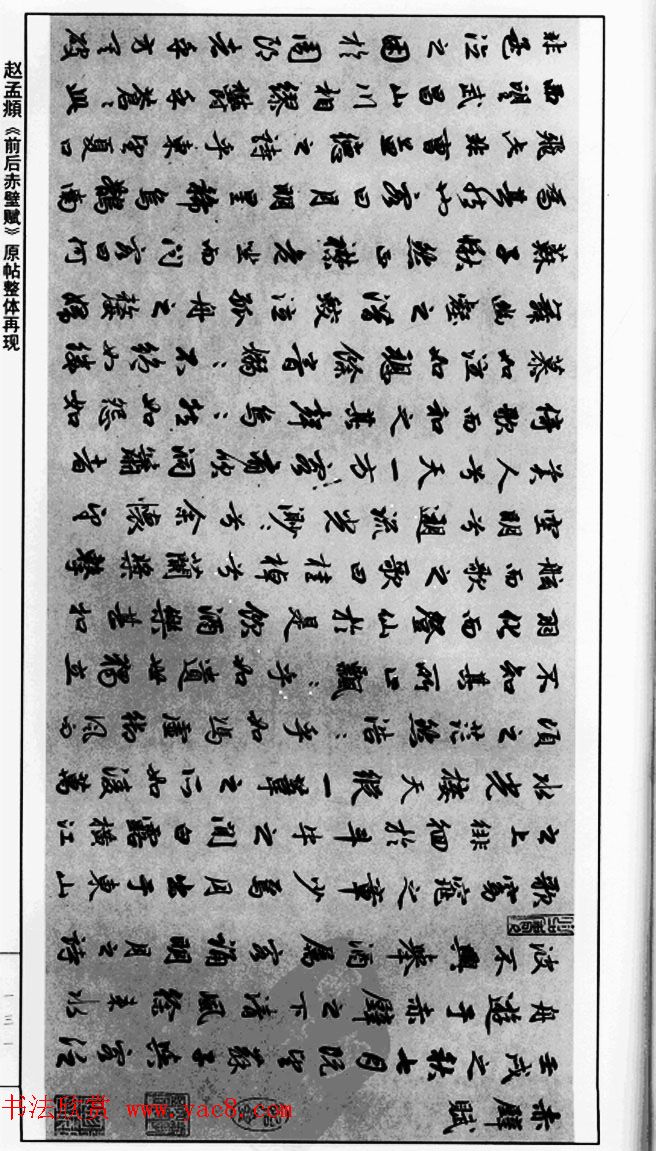 赵孟頫《前后赤壁赋》原帖整体再现
赤壁賦
壬戌之秋七月既望蘇子與客泛
舟遊于赤壁之下清風徐來水
波不興舉酒屬客誦明月之詩
歌窈窕之章少焉月出于東山
之上徘徊於斗牛之間白露橫江
水光接天縱一葦之所如凌萬
頃之茫然浩々乎如馮虛御風而
不知其所止飄々乎如遺世獨立
羽化而登仙於是飲酒樂甚扣
舷而歌之歌曰桂棹兮蘭槳擊
空明兮遡流光渺々兮余懷望
美人兮天一方客有吹洞簫者
倚歌而和之其聲烏々然如怨如
慕如泣如訴餘音嫋々不絕如縷
舞幽壑之潛蛟泣孤舟之嫠婦
蘇子愀然正襟危坐而問客曰何
為其然也客曰月明星稀烏鵲南
飛此非曹孟德之詩乎東望夏口
西望武昌山川相繆鬱乎蒼々此
非孟德之困於周郎者乎方其破
一三一
书法欣赏 www.yac8.com